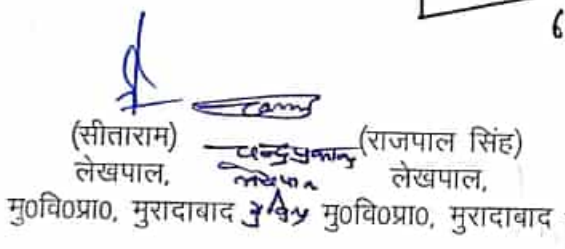 6
(सीताराम) चन्द्रप्रकाश (राजपाल सिंह)
लेखपाल, लेखपाल लेखपाल,
मु0वि0प्रा0, मुरादाबाद मु0वि0प्रा0, मुरादाबाद